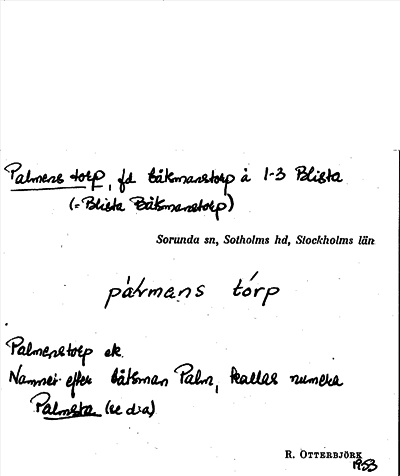 Palmens torp, fd båtsmanstorp å 1-3 Blista
(= Blista Båtsmanstorp)
Sorunda sn, Sotholms hd, Stockholms län
pálmans tórp
Palmenstorp ek.
Namnet efter båtsman Palm, kallas numera
Palmsta (se d:a)
R. OTTERBJÖRK
1953